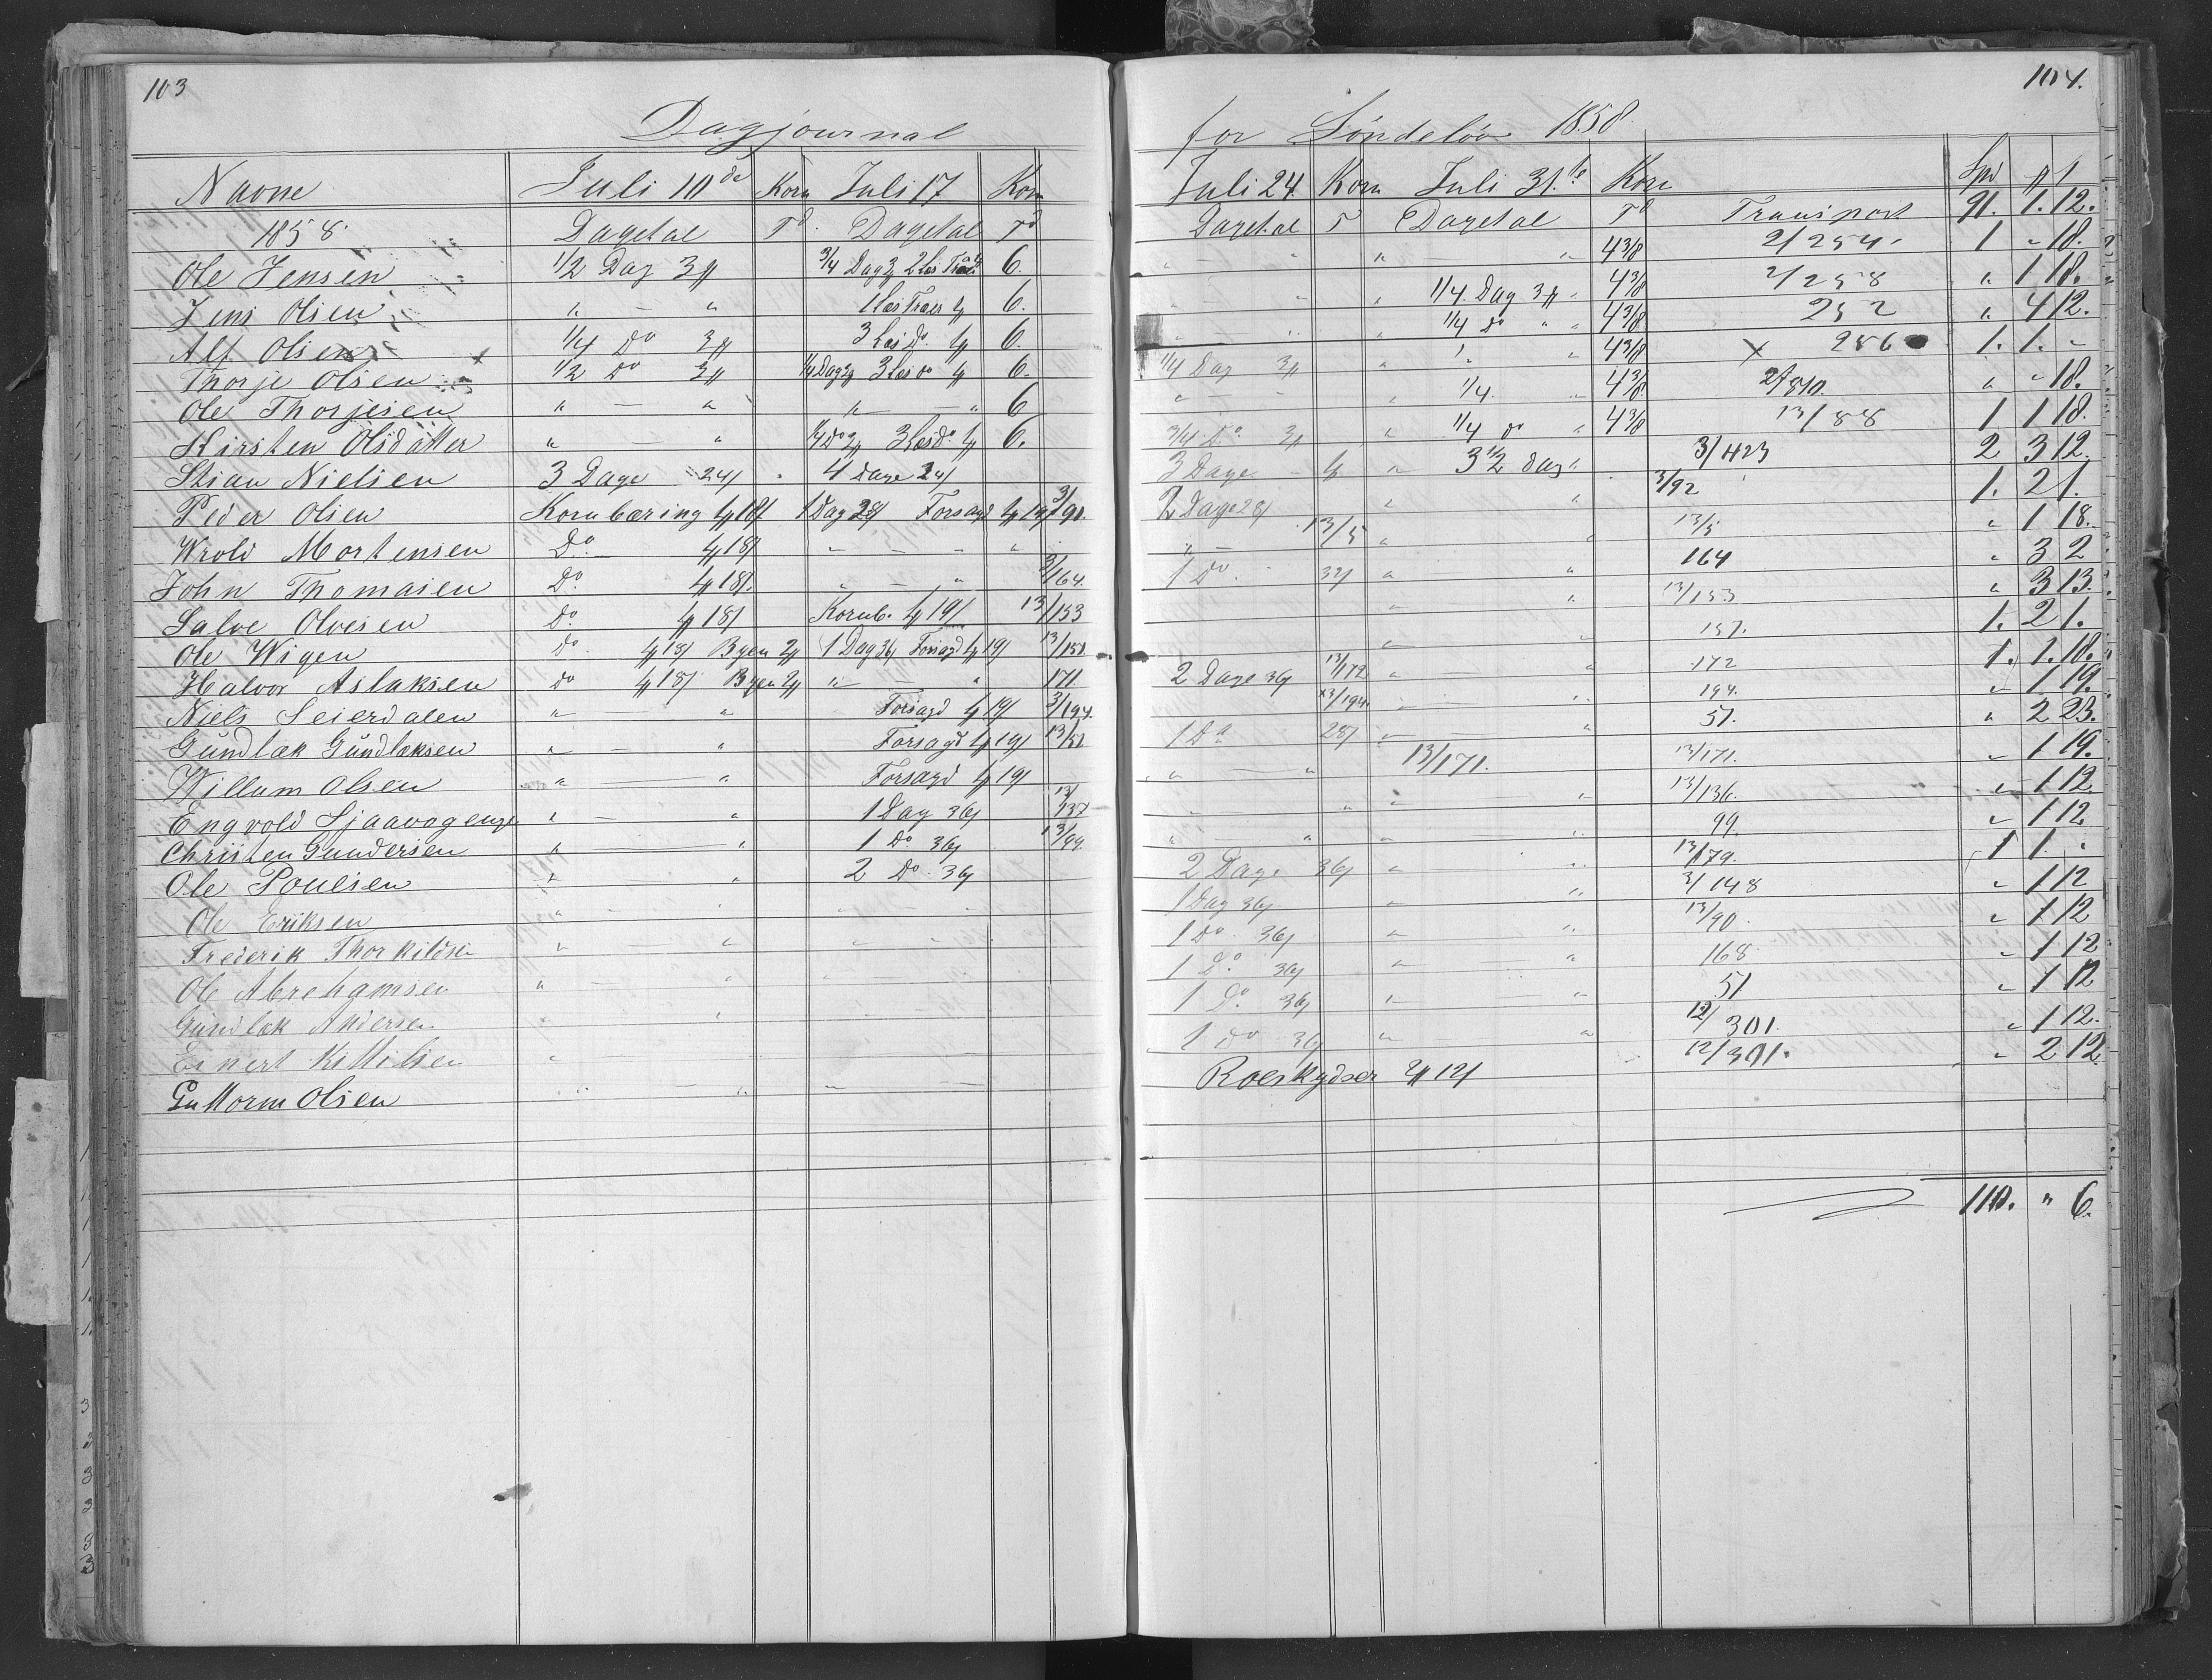 103
Dagjournal
Navne Juli 10de Korn Juli 17 Korn
1858. Dagetal Td. Dagetal Td
Ole Jensen 1/2 Dag 3 3/4 Dag 2 Læs 6.
Jens Olsen " — " 1 Læs Træer 6.
Alf Olsen 1/4 Do 3 3 Læs Do. 6.
Thorje Olsen 1/2 Do 3 1/4 Dag 3 Læs Do 6.
Ole Thorjesen " — " " — " 6
Kirsten Olsdatter " — " 1/4 Do 3 Læs Do 6.
Stian Nielsen 3 Dage 24 4 Dage 24
Peder Olsen Kornbæring 4 18 1 Dag 28 Forsagd 4 19 3/91.
Wrold Mortensen Do 4 18 " — — "
John Thomasen Do. 4 18. " — " 3/164.
Salve Olvesen Do. 4 18 Kornb. 4 19 13/153
Ole Wigen Do. 4 18 Byen 2 1 Dag 36 Forsagd 4 19 13/151.
Halvor Aslaksen Do 4 18 Byen 2 " — " 171.
Niels Seierdalen " — " Forsagd 4 19 3/194.
Gundlak Gundlaksen " — " Forsagd 4 19 13/51
Willum Olsen " — " Forsagd 4 19
Engvold " — " 1 Dag 36 13/137
Christen Gundersen " — " 1 Do 36 13/99.
Ole Poulsen " " 2 Do. 36
Ole Eriksen " — "
Frederik Thorkildsen " — " " — "
Ole Abrehamsen " — "
Gundlak Andersen "
Einert Kittilsen "
Guttorm Olsen " — " "
104.
for Søndeløv 1858.
Juli 24 Korn Juli 31te Korn Spd
Dagetal T Dagetal Td Transport 91. 1. 12.
" — " " — " 4 3/8 2/254. 1 " 18.
" — " " 1/4 Dag 3 " 4 3/8 2/258 " 1 18.
" " 1/4 Do " " 4 3/8 252 " 4 12.
1/4 Dag 3 " " 4 3/8 x 256 1. 1. "
" — " 1/4. " 4 3/8. 2/510. " " 18.
3/4 Do. 3 " 1/4 Do " 4 3/8 13/88 1 1 18.
3 Dage 4 " 3 1/2 Dag " 3/423 2 3 12.
2 Dage 28 " " 3/92 1. 2 1.
" — 13/5 " " 13/5 " 1 18.
1 Do. 32 " " 164 " 3 2
" " 13/153 " 3 13.
" " 151. 1. 2 1.
2 Dage 36 13/172 " " 172 1. 1. 18.
13/194 — " 194. " 1 19.
1 Do 28 " — " 51. " 2 23.
" " 13/171. 13/171. " 1 19.
" " — " 13/136. " 1 12
" — " " — " 99. " 1 12
2 Dage 36 " " 13/179. 1 1. "
1 Dag 36 " " 3/148 " 1 12
1 Do. 36 " " 13/90. " 1 12
1 Do. 36 " — " 168. " 1 12
1 Do. 36 " — " 51 " 1 12
1 Do 36 " " 12/301. " 1 12.
Roeskydser 2 12 12/301. " 2 12
110. " 6.